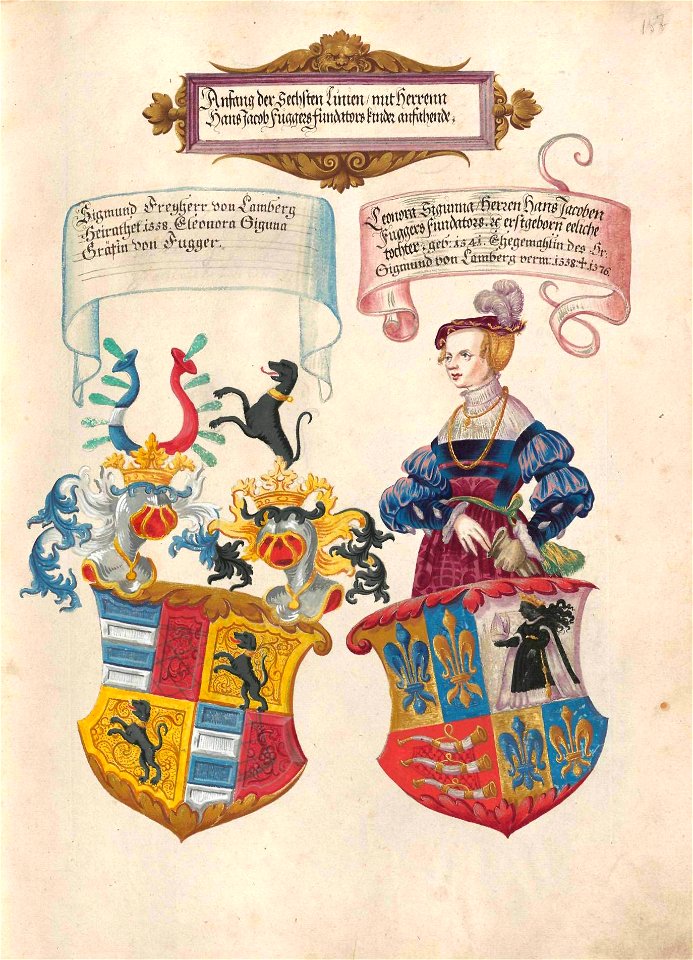 157
Anfang der Sechsten Linien / mit Herrenn
Hans Jacob Fuggers fundators kinder anfahende.
Sigmund Freyherr von Lamberg
Heirathet 1558. Eleonora Siguna
Gräfin von Fugger.
Leonora Sigunna / Herren Hans Jacoben
Fuggers fundators. ꝛc erstgeborn eeliche
tochter, geb: 1541. Ehegemahlin des Hr.
Sigmund von Lamberg verm: 1558. † 1576